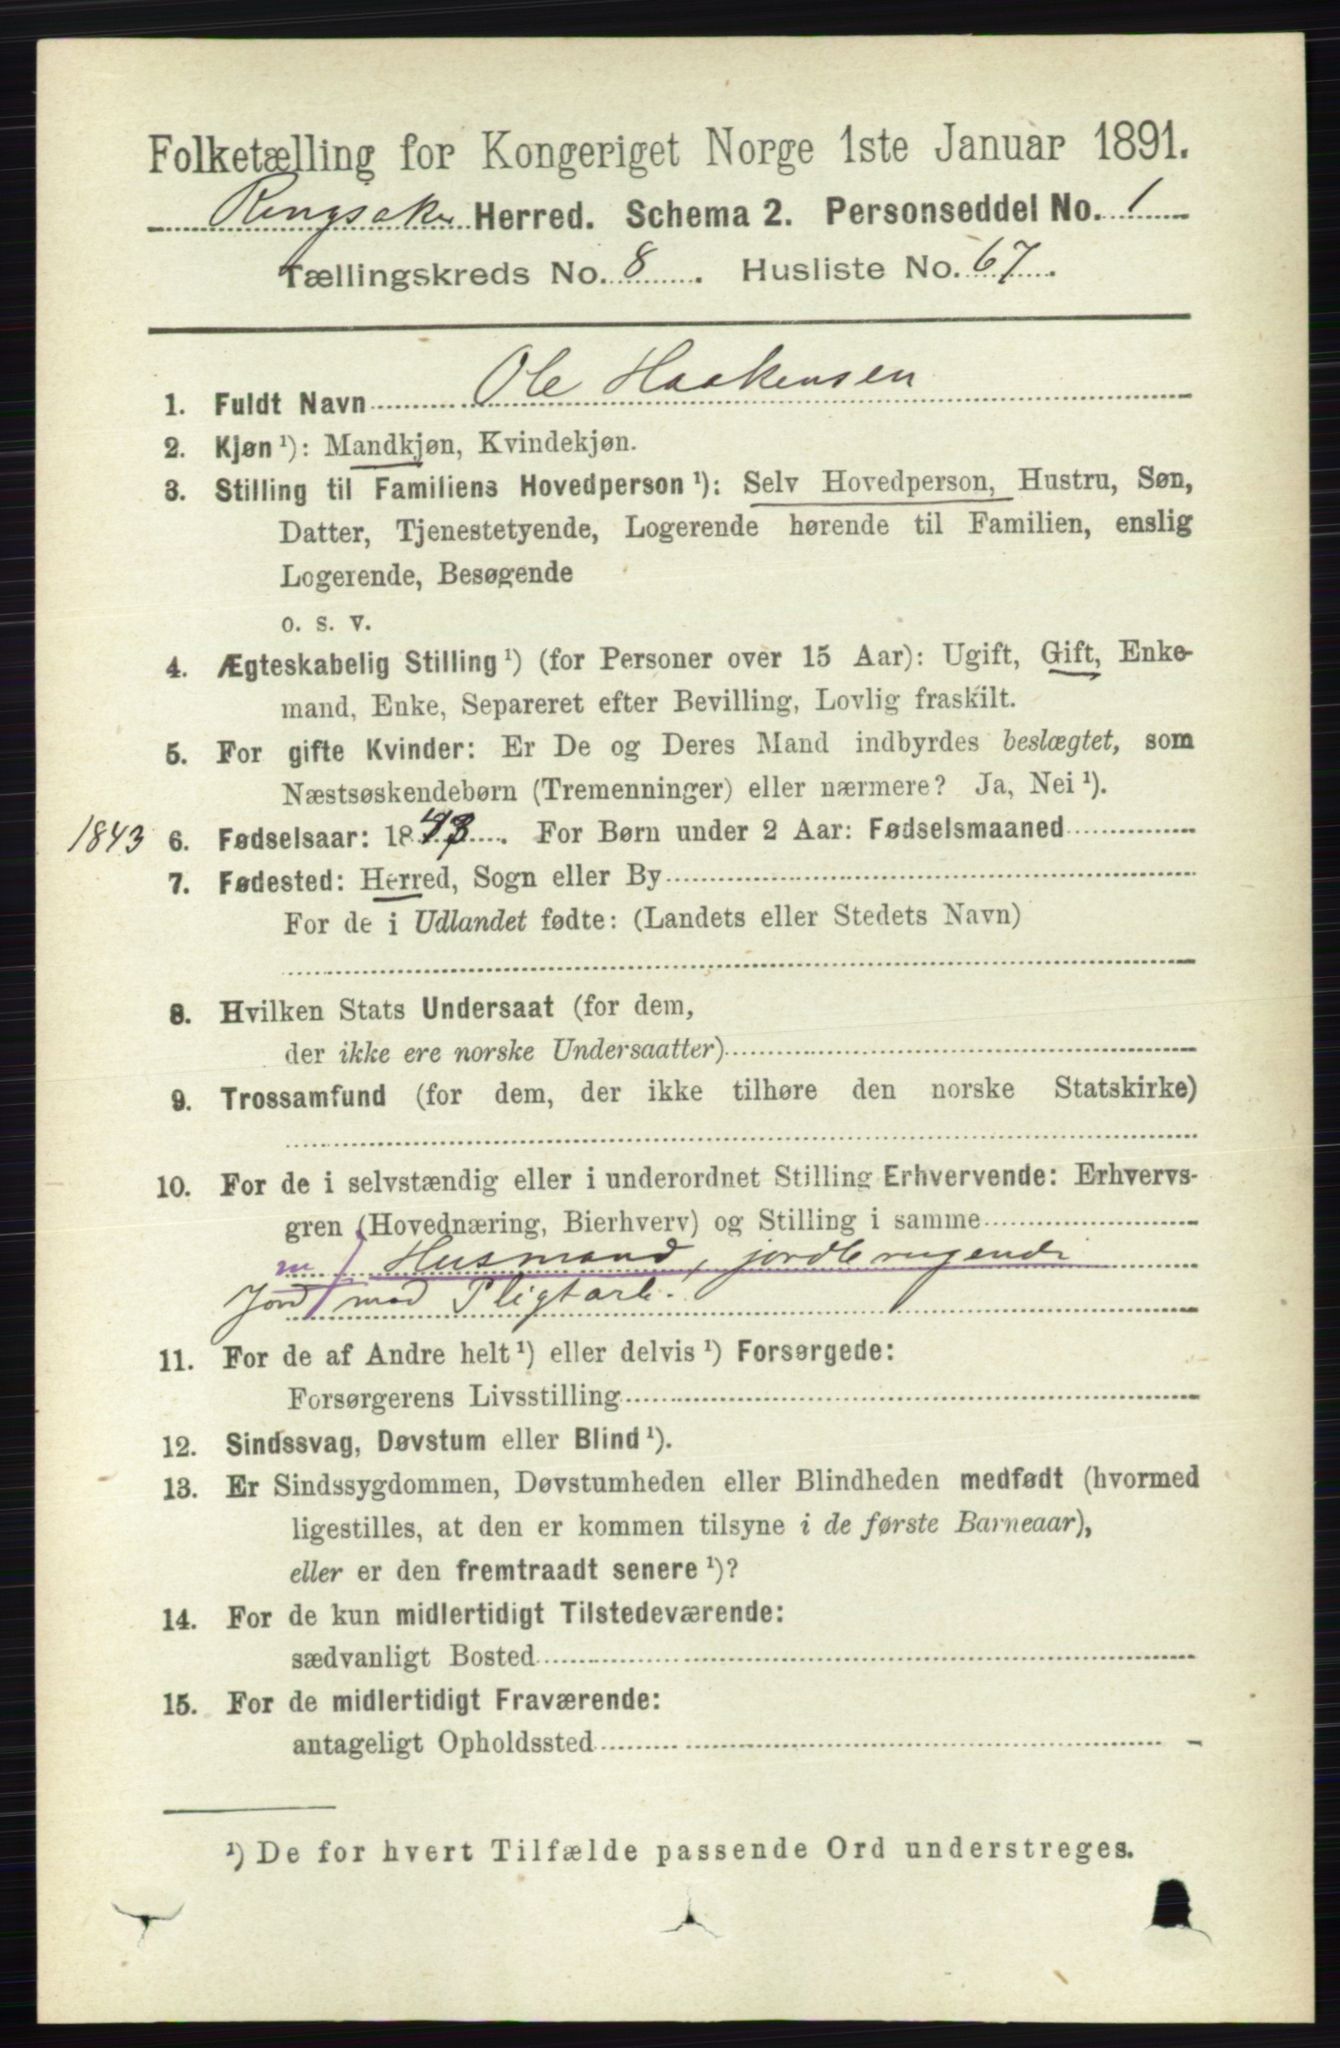 Folketælling for Kongeriget Norge 1ste Januar 1891.
Ringsaker Herred. Schema 2. Personseddel No. 1
Tællingskreds No. 8. Husliste No. 67.
1. Fuldt Navn Ole Haakensen
2. Kjøn¹): Mandkjøn, Kvindekjøn.
3. Stilling til Familiens Hovedperson¹): Selv Hovedperson, Hustru, Søn,
Datter, Tjenestetyende, Logerende hørende til Familien, enslig
Logerende, Besøgende
o. s. v.
4. Ægteskabelig Stilling¹) (for Personer over 15 Aar): Ugift, Gift, Enke-
mand, Enke, Separeret efter Bevilling, Lovlig fraskilt.
5. For gifte Kvinder: Er De og Deres Mand indbyrdes beslægtet, som
Næstsøskendebørn (Tremenninger) eller nærmere? Ja, Nei¹).
1843 6. Fødselsaar: 1843. For Børn under 2 Aar: Fødselsmaaned
7. Fødested: Herred, Sogn eller By
For de i Udlandet fødte: (Landets eller Stedets Navn)
8. Hvilken Stats Undersaat (for dem,
der ikke ere norske Undersaatter)
9. Trossamfund (for dem, der ikke tilhøre den norske Statskirke)
10. For de i selvstændig eller i underordnet Stilling Erhvervende: Erhvervs-
gren (Hovednæring, Bierhverv) og Stilling i samme
m/ Husmand, jordbrugende
Jord med Pligtarb.
11. For de af Andre helt¹) eller delvis¹) Forsørgede:
Forsørgerens Livsstilling
12. Sindssvag, Døvstum eller Blind¹).
13. Er Sindssygdommen, Døvstumheden eller Blindheden medfødt (hvormed
ligestilles, at den er kommen tilsyne i de første Barneaar),
eller er den fremtraadt senere¹)?
14. For de kun midlertidigt Tilstedeværende:
sædvanligt Bosted
15. For de midlertidigt Fraværende:
antageligt Opholdssted
¹) De for hvert Tilfælde passende Ord understreges.